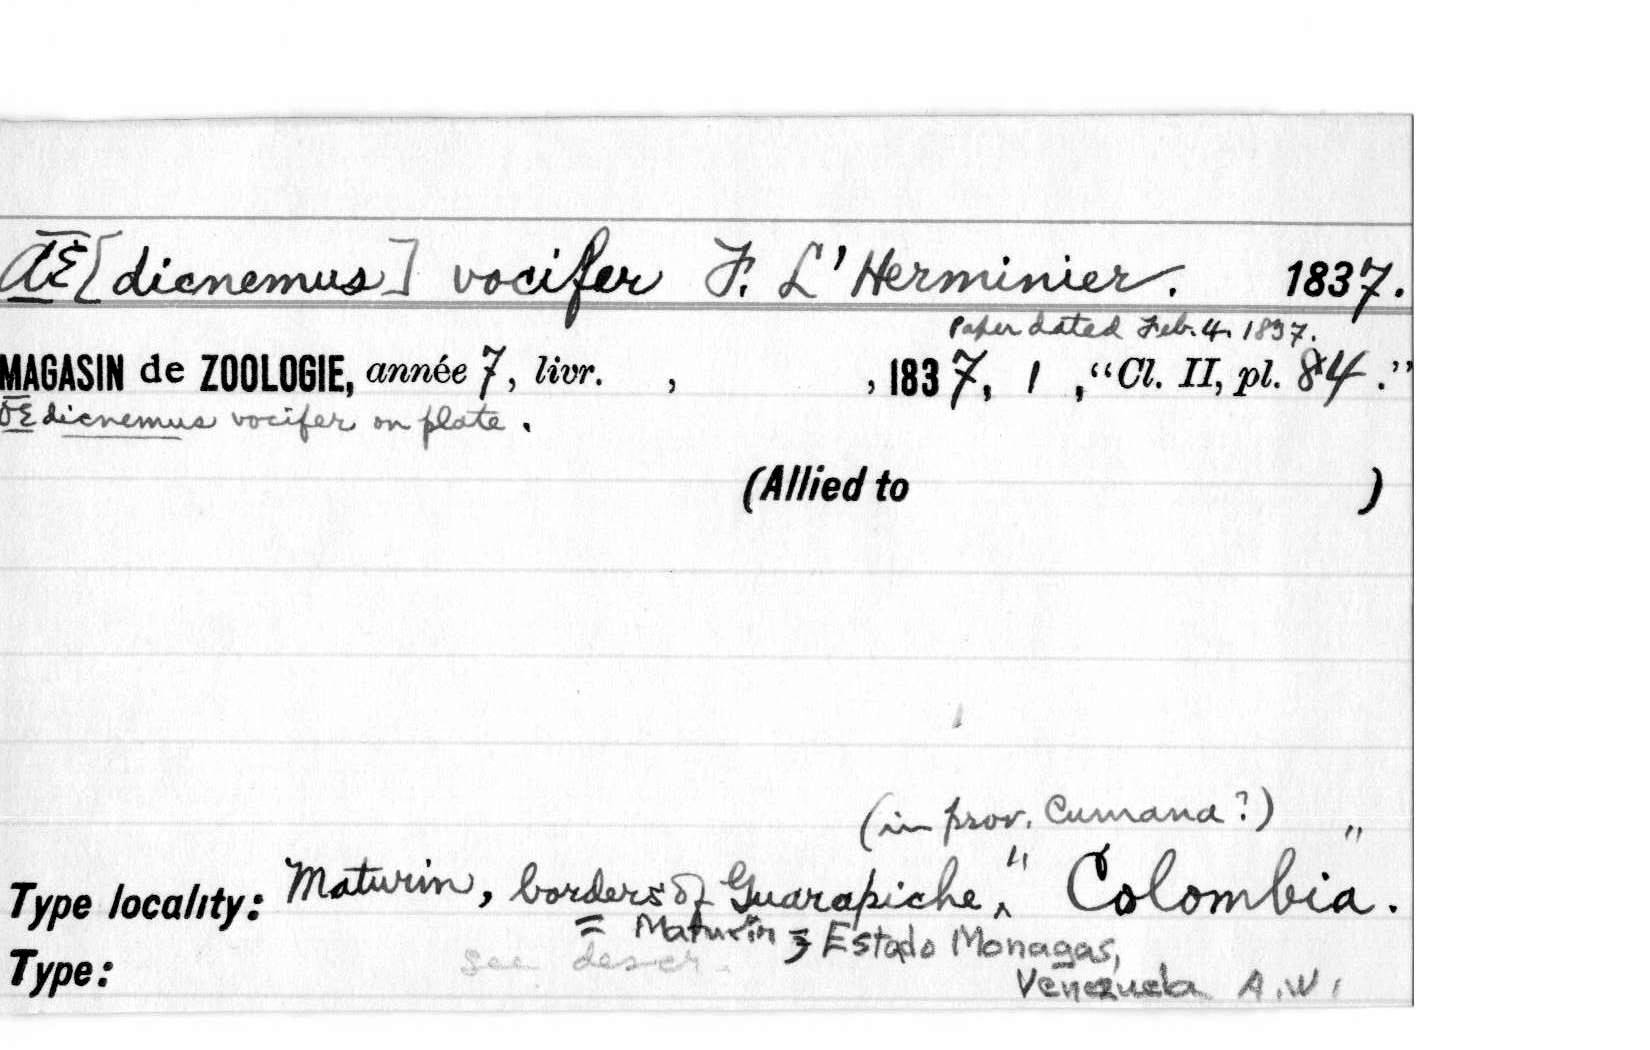 Æ[dicnemus] vocifer F. L'Herminier. 1837.
Paper dated Feb. 4. 1837.
MAGASIN de ZOOLOGIE, année 7, livr. , , 1837, 1 , “Cl. II, pl. 84.”
Œdicnemus vocifer on plate.
(Allied to )
(in prov. Cumana?)
Type locality: Maturin, borders of Guarapiche," Colombia."
= Maturín, Estado Monagas,
Type: see descr.
Venezuela A.W.